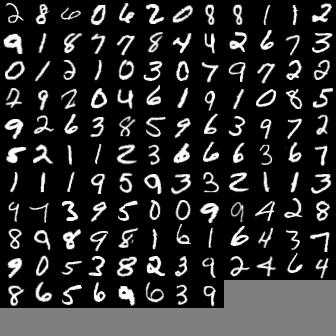 2 8 6 0 6 2 0 8 8 1 1 2
9 1 8 7 7 8 4 4 2 6 7 3
0 1 2 1 0 3 0 7 9 7 2 2
7 9 2 0 4 6 1 9 1 0 8 5
9 2 6 3 8 5 9 6 3 9 7 2
5 2 1 1 2 3 6 6 6 3 6 7
1 1 1 9 5 9 3 3 2 1 1 3
9 7 3 9 5 0 0 9 9 4 2 8
8 9 8 9 8 1 6 1 6 4 3 7
9 0 5 3 8 2 3 9 2 4 6 4
8 6 5 6 9 6 3 9